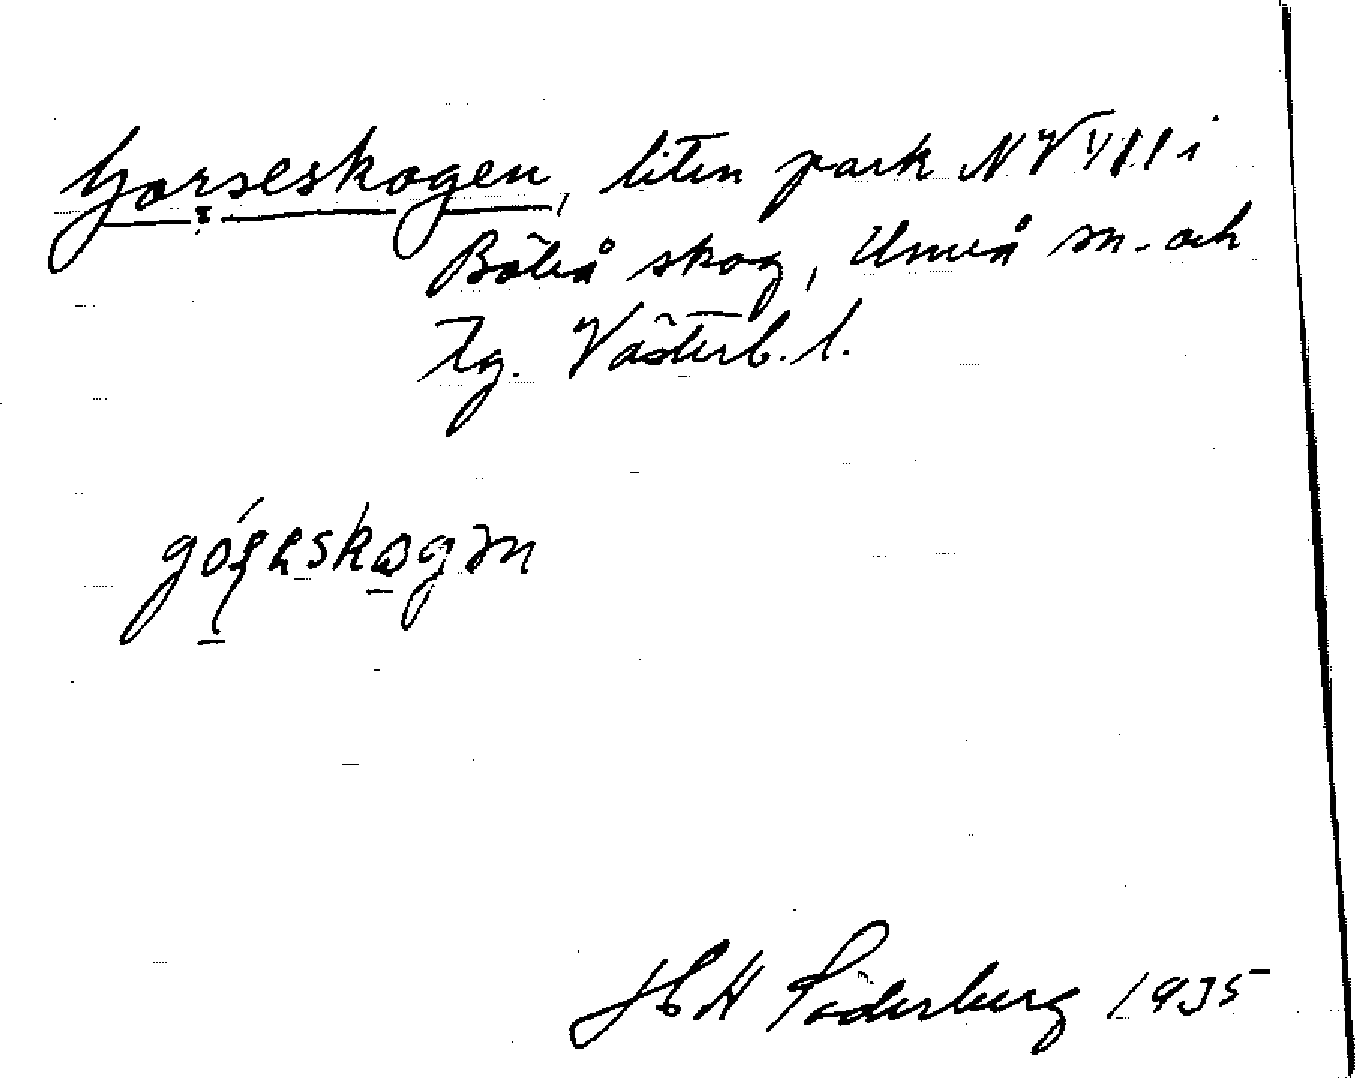 Gorseskogen, liten park NV VIII i
Böleå skog, Umeå sn. och
tg. Västerb. l.
góʂeskogən
J C H Söderberg 1935